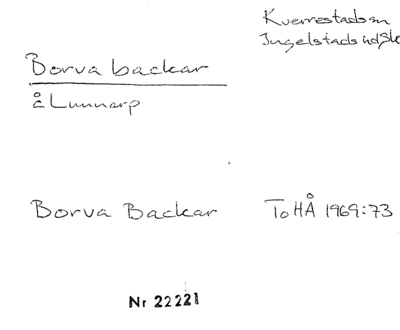 Kverrestads sn
Ingelstads hd, Sk
Borva backar
å Lunnarp
Borva Backar
To HÅ 1969:73
Nr 22221